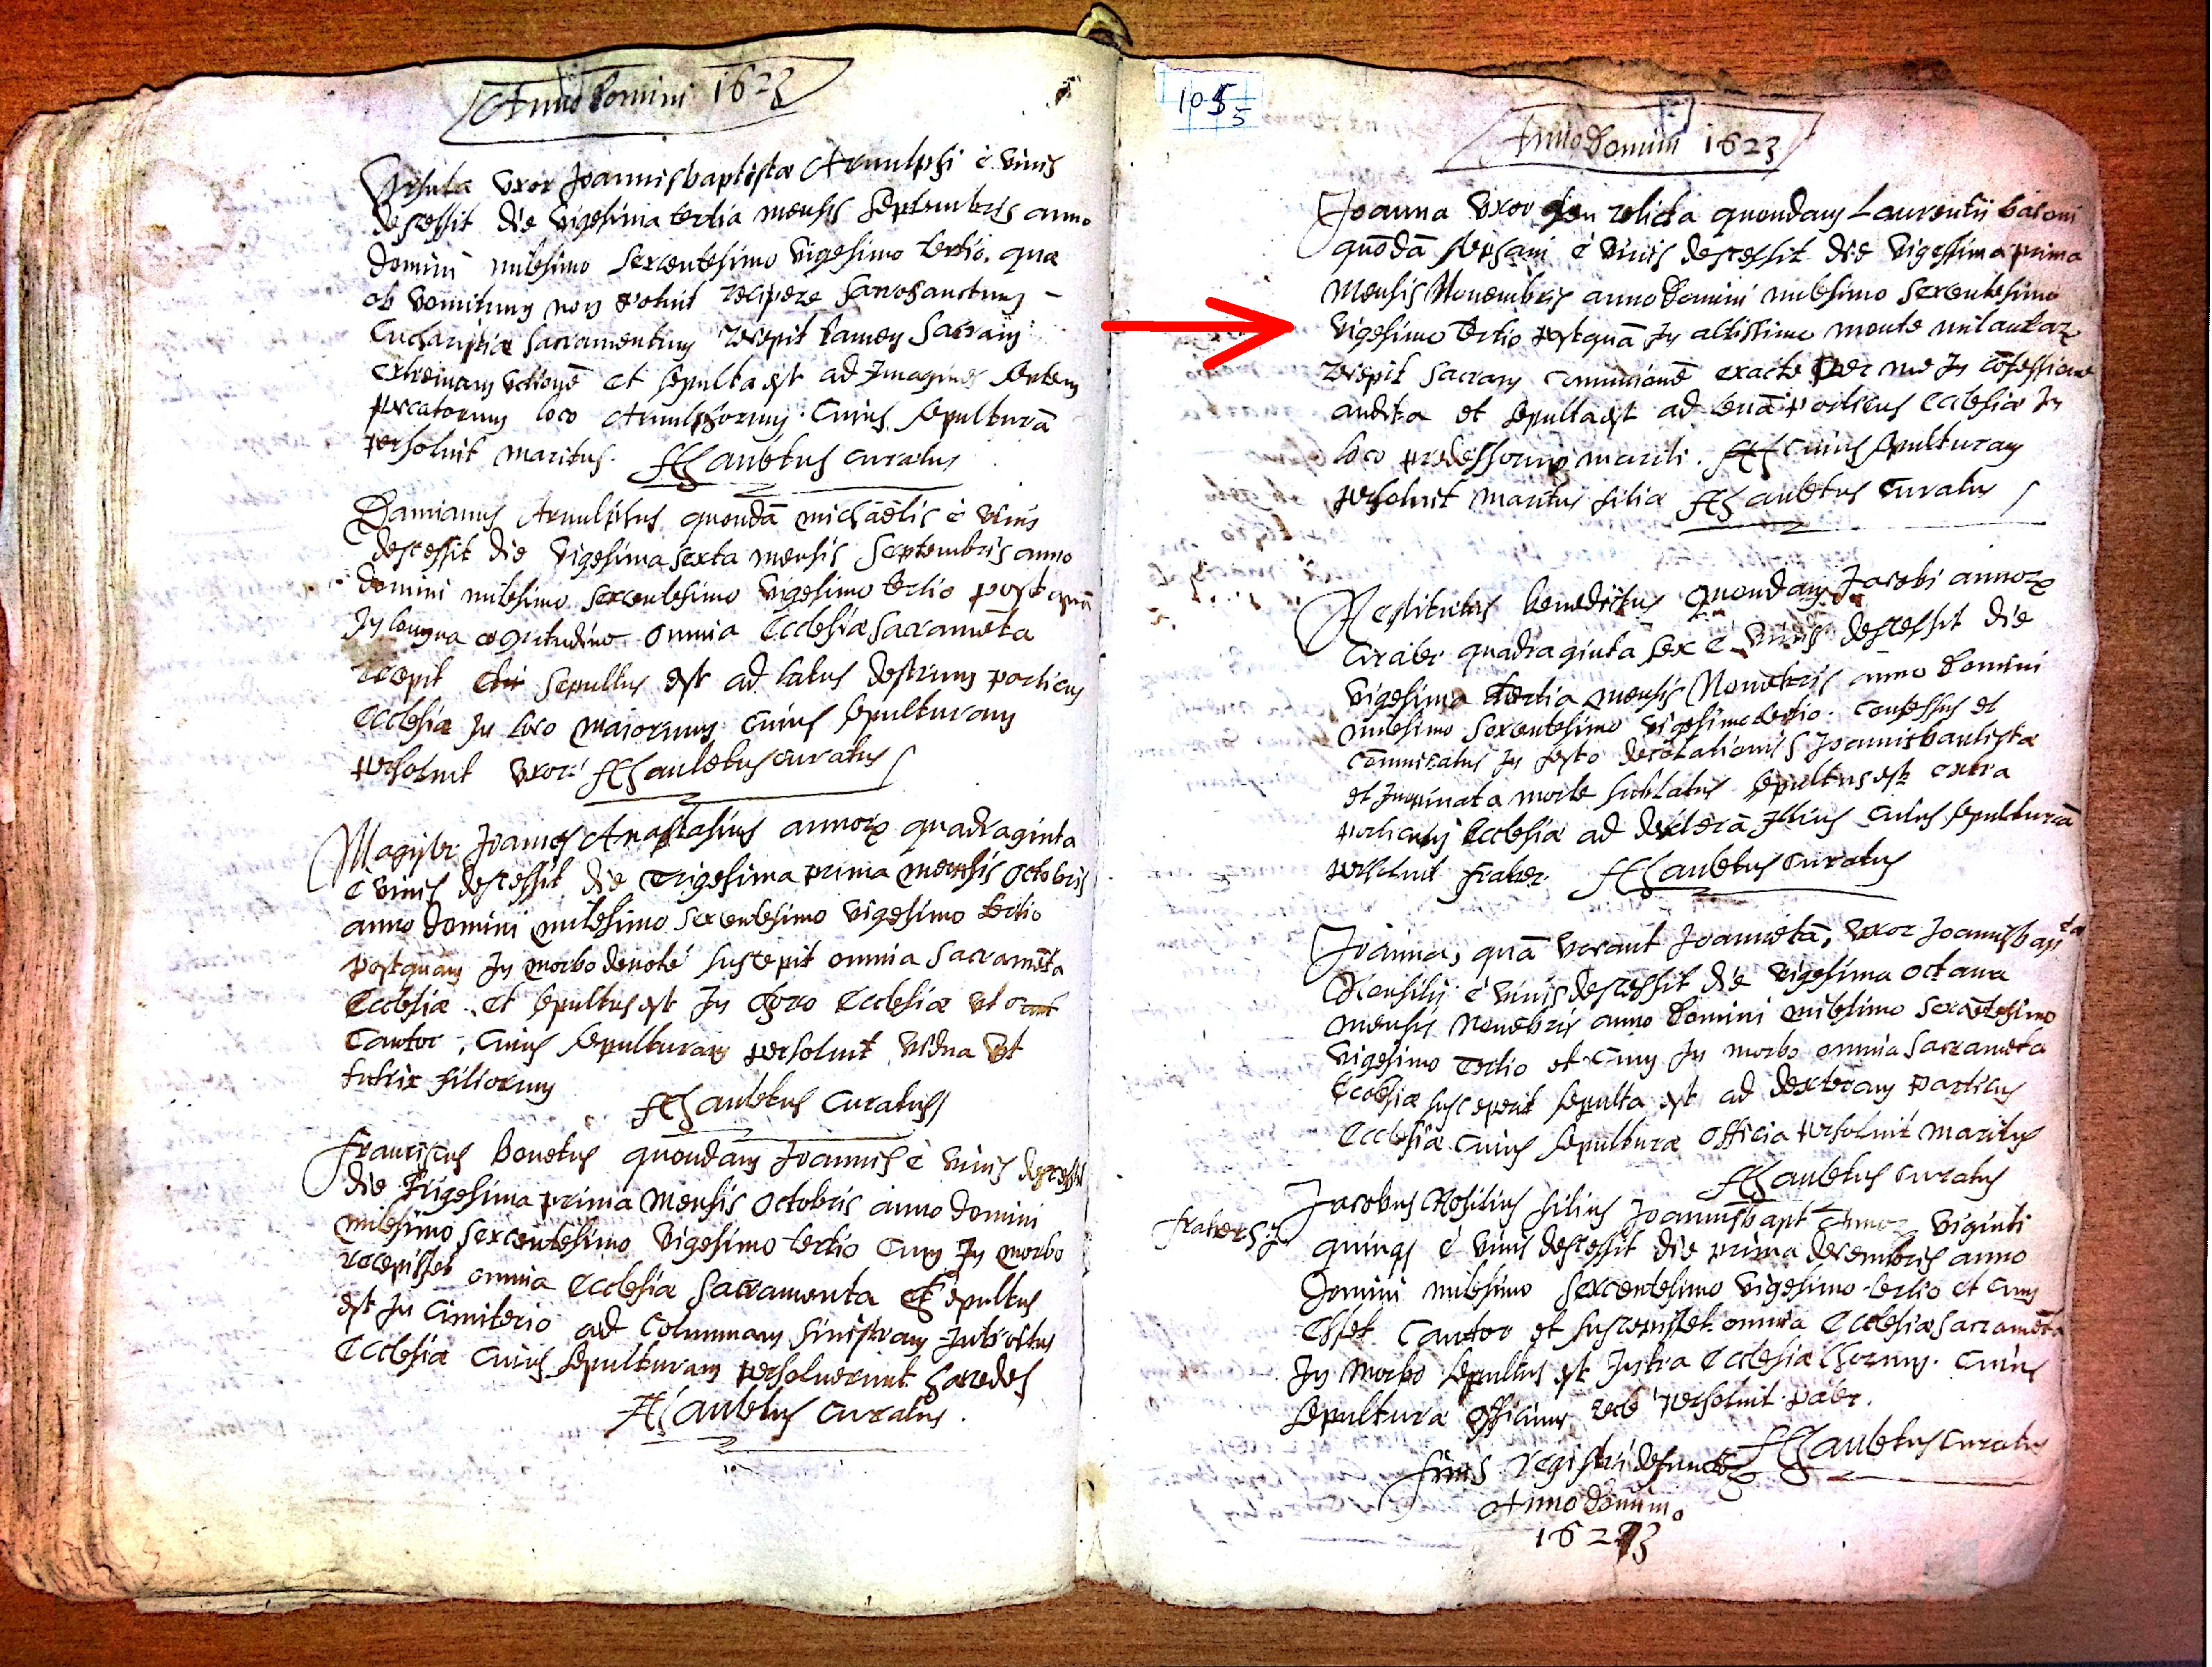 Anno Domini 1623
Ursula Uxor Joannisbaptistæ Arnulphi è viuis
descessit die Vigesima tertia mensis Septembris anno
Domini milesimo sexcentesimo Vigesimo tertio. quæ
ob Vomitum non potuit recipere Sacrosanctum –
Eucharistiæ sacramentum recepit tamen Sacram
extremam Vctionē et sepulta est ad Imagines septem
peccatorum loco Arnulphorum. Cuius sepulturā
persoluit maritus. curatus
Damianus Arnulphus quondā michaelis è viuis
descessit die Vigesima sexta mensis Septembris anno
Domini milesimo sexcentesimo Vigesimo tertio postquā
In longua egritudine omnia Ecclesiæ Sacramēta
recepit sepultus est ad latus destrum porticus
Ecclesiæ In loco maiorum Cuius sepulturam
persoluit Uxor curatus
Magister Joannes Anastasius annorȝ quadraginta
è viuis descessit die Trigesima prima mensis Octobris
anno Domini milesimo sexcentesimo Vigesimo tertio
postquam In morbo deuotè suscepit omnia Sacramēta
Ecclesiæ et sepultus est In Choro Ecclesiæ Vt
Cantor, Cuius sepulturam persoluit Vidua Vt
tutrix filiorum
curatus
Franciscus Bonetus quondam Joannis è viuis descessit
die Trigesima prima Mensis Octobris anno domini
milesimo sexcentesimo Vigesimo tertio Cum In morbo
recepisset omnia Ecclesiæ Sacramenta et sepultus
est In Cimiterio ad Columnam sinistram Introitus
Ecclesiæ Cuius sepulturam persoluerunt Hæredes
curatus.
105
5
Anno Domini 1623
Joanna Uxor relicta quondam Laurentii
quōdā è viuis descessit die Vigessima prima
Mensis Nouembris anno Domini milesimo sexcentesimo
Vigesimo tertio postquā In altissimo monte
recepit Sacram Comunionē exacte per me In cōfessione
audita et sepulta est ad leuā porticus Ecclesiæ In
loco mariti. Cuius sepulturam
persoluit maritus filiæ Curatus
Restitutus Benedictus quondam Jacobi annorȝ
Circiter quadraginta sex è viuis descessit die
Vigesima tertia mensis Nouēbris anno Domini
milesimo sexcentesimo Vigesimo tertio. Confessus et
Cōmunicatus In festo decolationis S Joannisbautistæ
et Inopinata morte sublatus sepultus est extra
porticum Ecclesiæ ad dexterā Illius Cuius sepulturā
persoluit frater. curatus
Joanna, quā vocant Joannetā, Uxor Joannisbapta
è viuis descessit die Vigesima octaua
mensis Nouēbris anno Domini milesimo sexcētesimo
Vigesimo Tertio et Cum In morbo omnia Sacramēta
Ecclesiæ susceperit sepulta est ad dexteram porticus
Ecclesiæ Cuius sepulturæ officia persoluit maritus
curatus
Jacobus Rosilius filius Joannisbapt annorȝ Viginti
quinqȝ è viuis descessit die prima decembris anno
Domini milesimo sexcentesimo Vigesimo tertio et Cum
esset Cantor et suscepisset omnia Ecclesiæ Sacramēta
In Morbo sepultus est Intra Ecclesiæ Chorum. Cuius
sepulturæ officium persoluit pater.
curatus
finis registri defunctorȝ
Anno Domini
1623